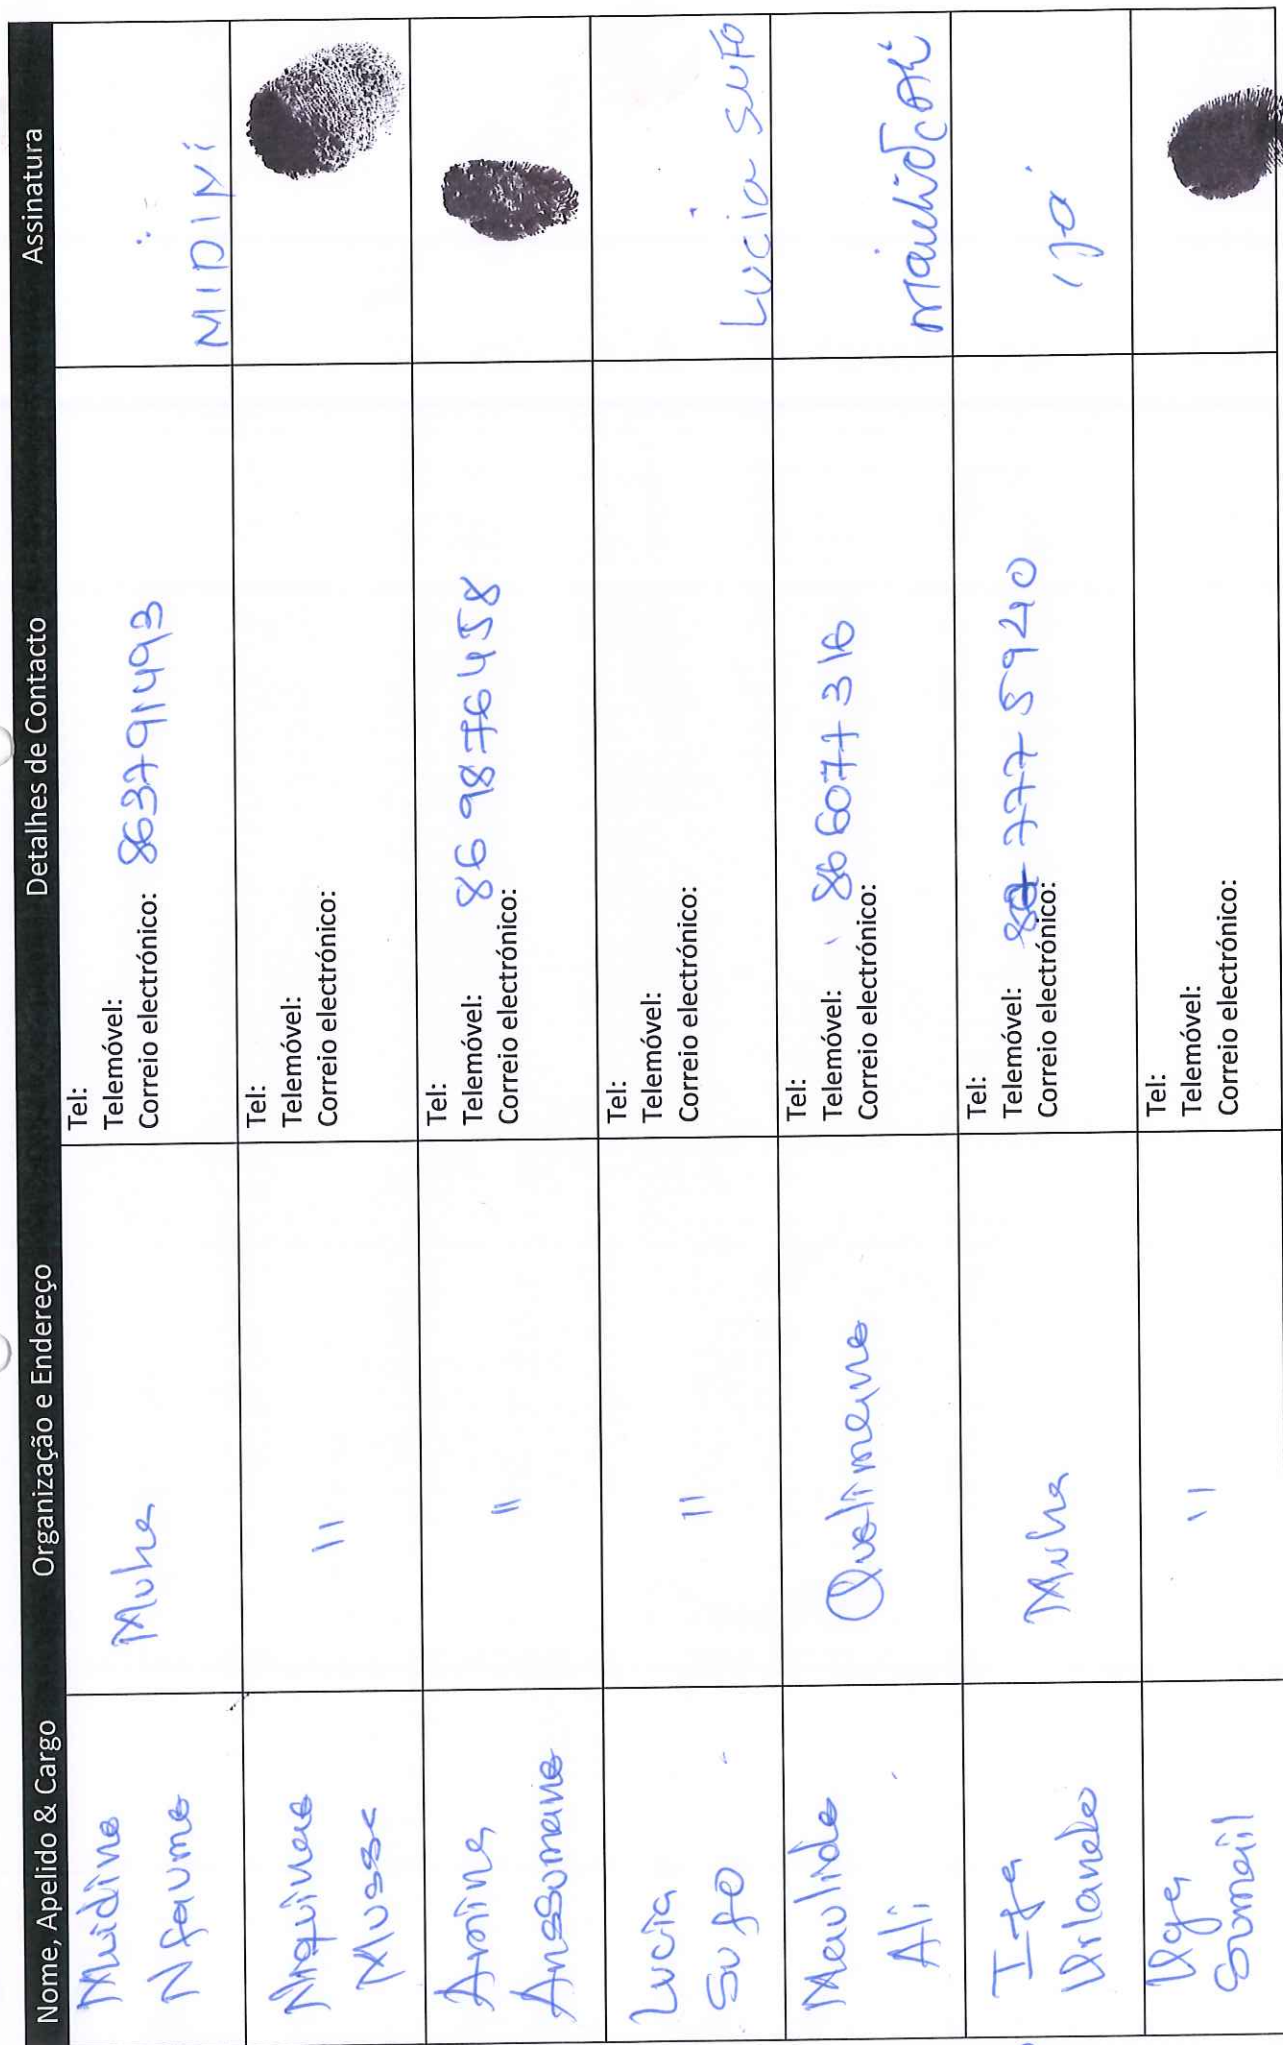 Nome, Apelido & Cargo Organização e Endereço Detalhes de Contacto Assinatura
Muidine
Nfaume
Muha
Tel:
Telemóvel:
Correio electrónico: 863791493
MIDINI
Musse
11
Tel:
Telemóvel:
Correio electrónico:
Amina
Anssumane
11
Tel:
Telemóvel: 869876458
Correio electrónico:
Lucia
Sufo
11
Tel:
Telemóvel:
Correio electrónico:
Lucia Sufo
Maulide
Ali
Tel:
Telemóvel: 866077316
Correio electrónico:
Muha
Tel:
Telemóvel:
Correio electrónico:
Sumail
11
Tel:
Telemóvel:
Correio electrónico: